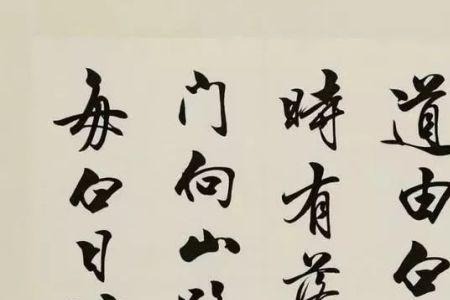 道由白
時有落
门向山
每白日